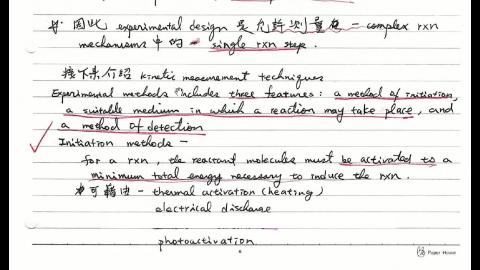 因此 experimental design 是允許測量在一 complex rxn
mechanisms 中的 single rxn step.
接下來介紹 kinetic measurement techniques
Experimental methods includes three features: a method of initiation,
a suitable medium in which a reaction may take place, and
a method of detection
Initiation methods -
for a rxn, the reactant molecules must be activated to a
minimum total energy necessary to induce the rxn.
可藉由 - thermal activation (heating)
electrical discharge
photoactivation
Paper House